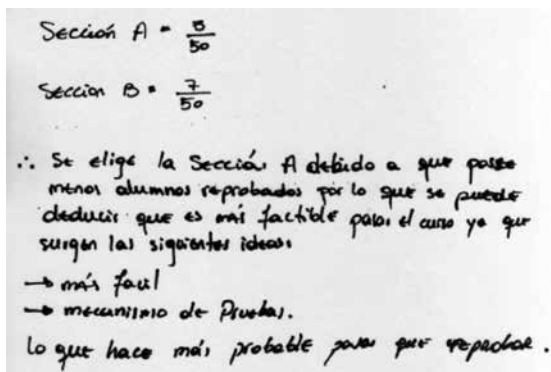 Sección A = 5/50
Seccion B = 7/50
∴ Se elige la Sección A debido a que posee
menos alumnos reprobados por lo que se puede
deducir que es más factible pasar el curso ya que
surgen las siguientes ideas:
→ más facil
→ mecanismo de Pruebas.
lo que hace más probable pasar que reprobar.